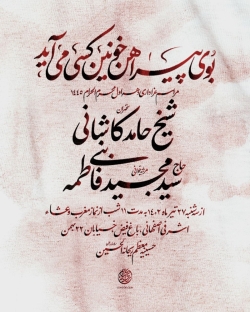 بوی پیراهن خونین کسی می‌آید
مراسم عزاداری دهه اول محرم الحرام ۱۴۴۵
سخنران
شیخ حامد کاشانی
مرثیه‌خوانی
حاج سید مجید بنی فاطمه
از سه‌شنبه ۲۷ تیر ماه ۱۴۰۲ به مدت ۱۱ شب از نماز مغرب و عشاء
اشرفی اصفهانی، باغ فیض، خیابان ۲۲ بهمن
حسینیه معظم ریحانة الحسین